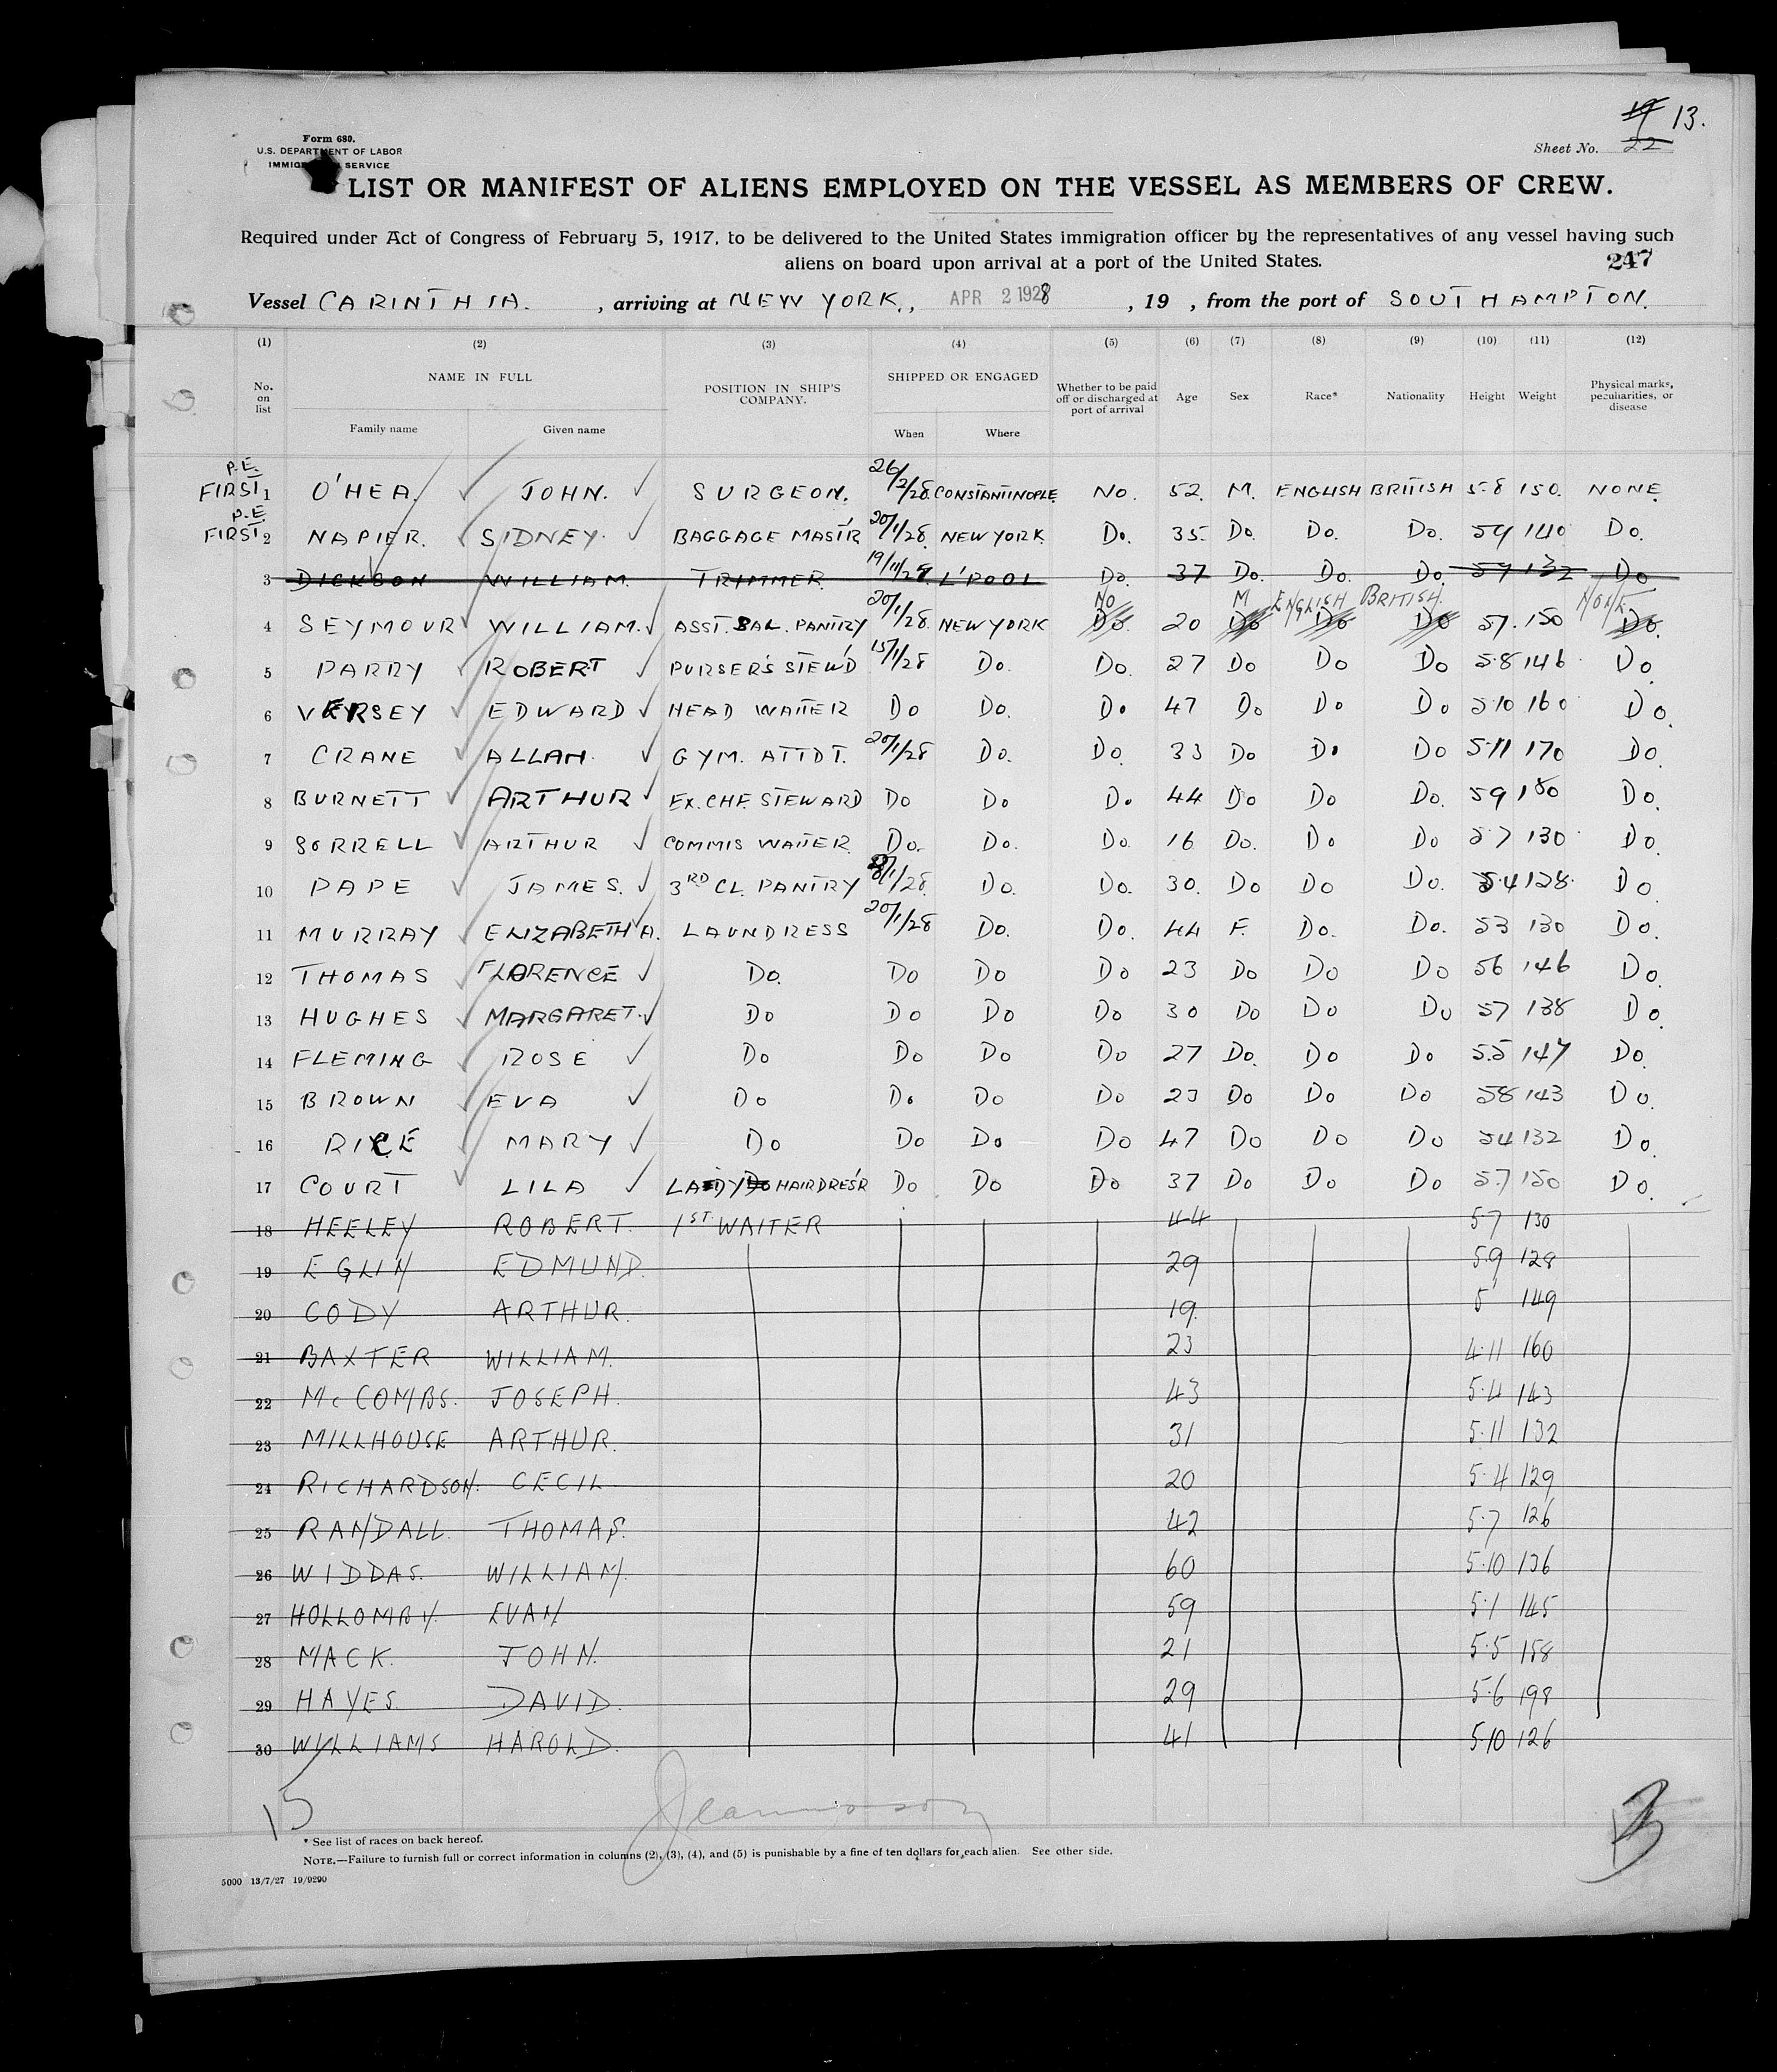 19 13.
Form 680.
U.S. DEPARTMENT OF LABOR
SERVICE
Sheet No. 22
LIST OR MANIFEST OF ALIENS EMPLOYED ON THE VESSEL AS MEMBERS OF CREW.
Required under Act of Congress of February 5, 1917, to be delivered to the United States immigration officer by the representatives of any vessel having such
aliens on board upon arrival at a port of the United States.
247
Vessel CARINTHIA. , arriving at NEW YORK., APR 2 1928 , 19 , from the port of SOUTHAMPTON.
(1) (2) (3) (4) (5) (6) (7) (8) (9) (10) (11) (12)
No. on list NAME IN FULL POSITION IN SHIP'S COMPANY. SHIPPED OR ENGAGED Whether to be paid off or discharged at port of arrival Age Sex Race* Nationality Height Weight Physical marks, peculiarities, or disease
Family name Given name When Where
P.E.
FIRST 1 O'HEA. JOHN. SURGEON. 26/2/28. CONSTANTINOPLE. NO. 52. M. ENGLISH BRITISH 5.8 150. NONE.
P.E.
FIRST 2 NAPIER. SIDNEY. BAGGAGE MAST'R 20/1/28. NEW YORK. Do. 35. Do. Do. Do. 59 140 Do.
3 DICKSON WILLIAM. TRIMMER. 19/11/27 L'POOL Do. 37 Do. Do. Do. 57 132 Do
NO M ENGLISH BRITISH. NONE
4 SEYMOUR WILLIAM. ASST. BAL. PANTRY 20/1/28. NEW YORK Do. 20 Do Do Do 57. 150 Do.
5 PARRY ROBERT PURSER'S STEW'D 15/1/28 Do. Do. 27 Do Do Do 5.8 146 Do.
6 VERSEY EDWARD HEAD WAITER Do Do. Do 47 Do Do Do 5.10 160 Do.
7 CRANE ALLAN. GYM. ATTDT. 20/1/28 Do. Do. 33 Do Do Do 5.11 170 Do.
8 BURNETT ARTHUR EX. CHF. STEWARD Do Do Do 44 Do Do Do. 59 180 Do.
9 SORRELL ARTHUR COMMIS WAITER. Do. Do. Do. 16 Do. Do Do 5.7 130 Do.
10 PAPE JAMES. 3RD CL. PANTRY /1/28. Do. Do. 30. Do Do Do. 5.4 128. Do.
11 MURRAY ELIZABETH A. LAUNDRESS 20/1/28 Do. Do. 44 F. Do. Do. 53 130 Do.
12 THOMAS FLORENCE Do. Do Do Do 23 Do Do Do 56 146 Do.
13 HUGHES MARGARET. Do Do Do Do 30 Do Do Do 57 138 Do.
14 FLEMING ROSE Do Do Do Do 27 Do. Do Do 5.5 147 Do.
15 BROWN EVA Do Do Do Do 23 Do Do Do 58 143 Do.
16 RICE MARY Do Do Do Do 47 Do Do Do 54 132 Do.
17 COURT LILA LADY Do HAIRDRES'R Do Do Do 37 Do Do Do 5.7 150 Do.
18 HEELEY ROBERT. 1ST WAITER 44 5.7 130
19 EGLIN EDMUND. 29 5.9 128
20 CODY ARTHUR. 19. 5' 149
21 BAXTER WILLIAM. 23 4.11 160
22 McCOMBS. JOSEPH. 43 5.4 143
23 MILLHOUSE ARTHUR. 31 5.11 132
24 RICHARDSON. CECIL 20 5.4 129
25 RANDALL. THOMAS. 42 5.7 126
26 WIDDAS. WILLIAM. 60 5.10 136
27 HOLLOMBY. EVAN 59 5.1 145
28 MACK. JOHN. 21 5.5 158
29 HAYES. DAVID. 29 5.6 198
30 WILLIAMS HAROLD. 41 5.10 126
15
* See list of races on back hereof.
NOTE.—Failure to furnish full or correct information in columns (2), (3), (4), and (5) is punishable by a fine of ten dollars for each alien. See other side.
5000 13/7/27 19/9290